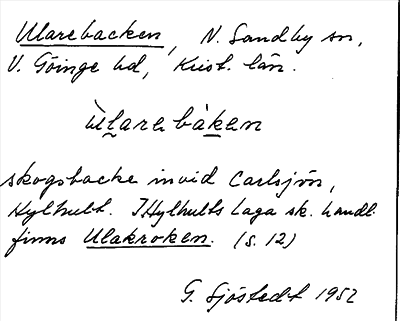 Ularebacken, N. Sandby sn,
V. Göinge hd, Krist. län.
ùlare bàken
skogsbacke invid Carlsjön,
Hylhult. I Hylhults Laga sk. handl.
finns Ulakroken. (s. 12)
G. Sjöstedt 1952